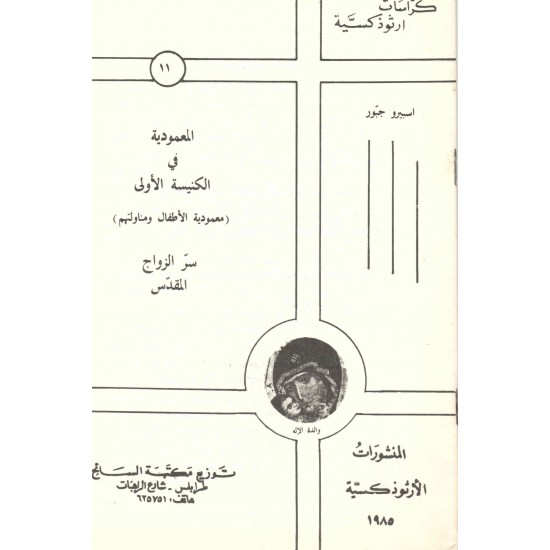 كرّاسات
ارثوذكسيّة
١١
اسبيرو جبّور
المعمودية
في
الكنيسة الأولى
(معمودية الأطفال ومناولتهم)
سرّ الزواج
المقدّس
والدة الإله
المنشورات
الأرثوذكسيّة
١٩٨٥
توزيع مكتبة السائح
طرابلس - شارع الراهبات
هاتف: ٦٢٥٧٥١